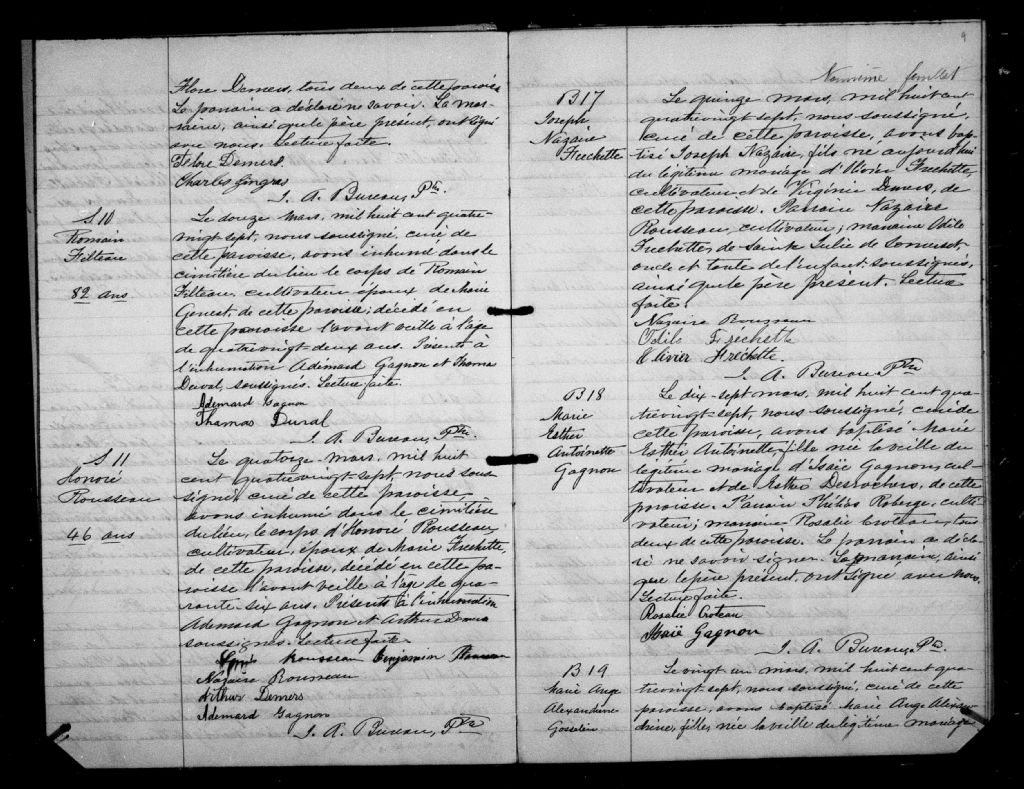 Flore Demers, tous deux de cette paroisse
Le parrain a déclaré ne savoir. La mar-
raine, ainsi que le père présent, ont signé
avec nous. Lecture faite.
Flore Demers
Charles Gingras
J. A. Bureau, Ptre.
S 10
Romain
Filteau
82 ans
Le douze mars, mil huit cent quatre-
vingt-sept, nous soussigné, curé de
cette paroisse, avons inhumé dans le
cimetière du lieu le corps de Romain
Filteau, cultivateur époux de Marie
Genest de cette paroisse; décédé en
cette paroisse l'avant veille à l'age
de quatrevingt-deux ans. Présents à
l'inhumation Adémard Gagnon et Thomas
Duval, soussignés. Lecture faite.
Ademard Gagnon
Thomas Duval
J. A. Bureau, Ptre.
S 11
Honoré
Rousseau
46 ans
Le quatorze mars, mil huit
cent quatrevingt-sept, nous sous-
signé, curé de cette paroisse
avons inhumé dans le cimitière
du lieu, le corps d'Honoré Rousseau,
cultivateur, époux de Marie Frechette,
de cette paroisse, décédé en cette pa-
roisse l'avant veille à l'âge de qua-
rante-six ans. Présents à l'inhumation
Ademard Gagnon et Arthur Demers
soussignés. Lecture faite.
Rousseau Benjamin
Nazaire Rousseau
Arthur Demers
Ademard Gagnon
J. A. Bureau, Ptre
9
Neuvième feuillet
B 17
Joseph
Nazaire
Frechette
Le quinze mars, mil huit cent
quatrevingt sept, nous soussigné,
curé de cette paroisse, avons bap-
tisé Joseph Nazaire, fils né aujourd'hui
du légitime mariage d'Olivier Frechette,
cultivateur et de Virginie Demers, de
cette paroisse. Parrain Nazaire
Rousseau, cultivateur; marraine Odile
Frechette, de Sainte Julie de Somerset,
oncle et tante de l'enfant soussignés,
ainsi que le père présent. Lecture
faite.
Nazaire Rousseau
Odile Fréchette
Olivier Fréchette.
J. A. Bureau, Ptre
B 18
Marie
Esther
Antoinette
Gagnon
Le dix-sept mars, mil huit cent qua-
trevingt-sept, nous soussigné, curé de
cette paroisse, avons baptisé Marie
Esther Antoinette, fille née la veille du
légitime mariage d'Isaïe Gagnon, cul-
tivateur et de Esther Desrochers, de cette
paroisse. Parrain Philéas Roberge, culti-
vateur; marraine Rosalie Croteau, tous
deux de cette paroisse. Le parrain a décla-
ré ne savoir signer. La marraine, ainsi
que le père présent, ont signé avec nous.
Lecture faite.
Rosalie Croteau
Isaïe Gagnon
J. A. Bureau, Ptre.
B 19
Marie Ange
Alexandrine
Gosselin
Le vingt un mars, mil huit cent qua-
trevingt-sept, nous soussigné, curé de cette
paroisse, avons baptisé Marie Ange Alexan-
drine, fille, née la veille du légitime mariage